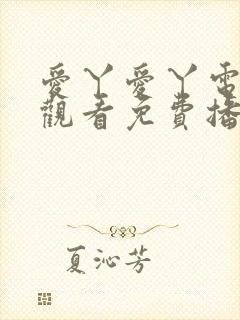 愛丫愛丫電
觀看免費播
夏沁芳